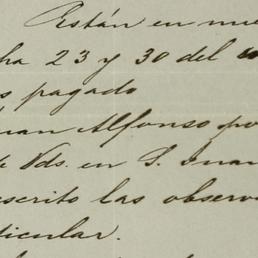 Están en nue
ha 23 y 30 del
s pagado
uan Alfonso po
de Vds. en S. Juan
escrito las observ
ticular.